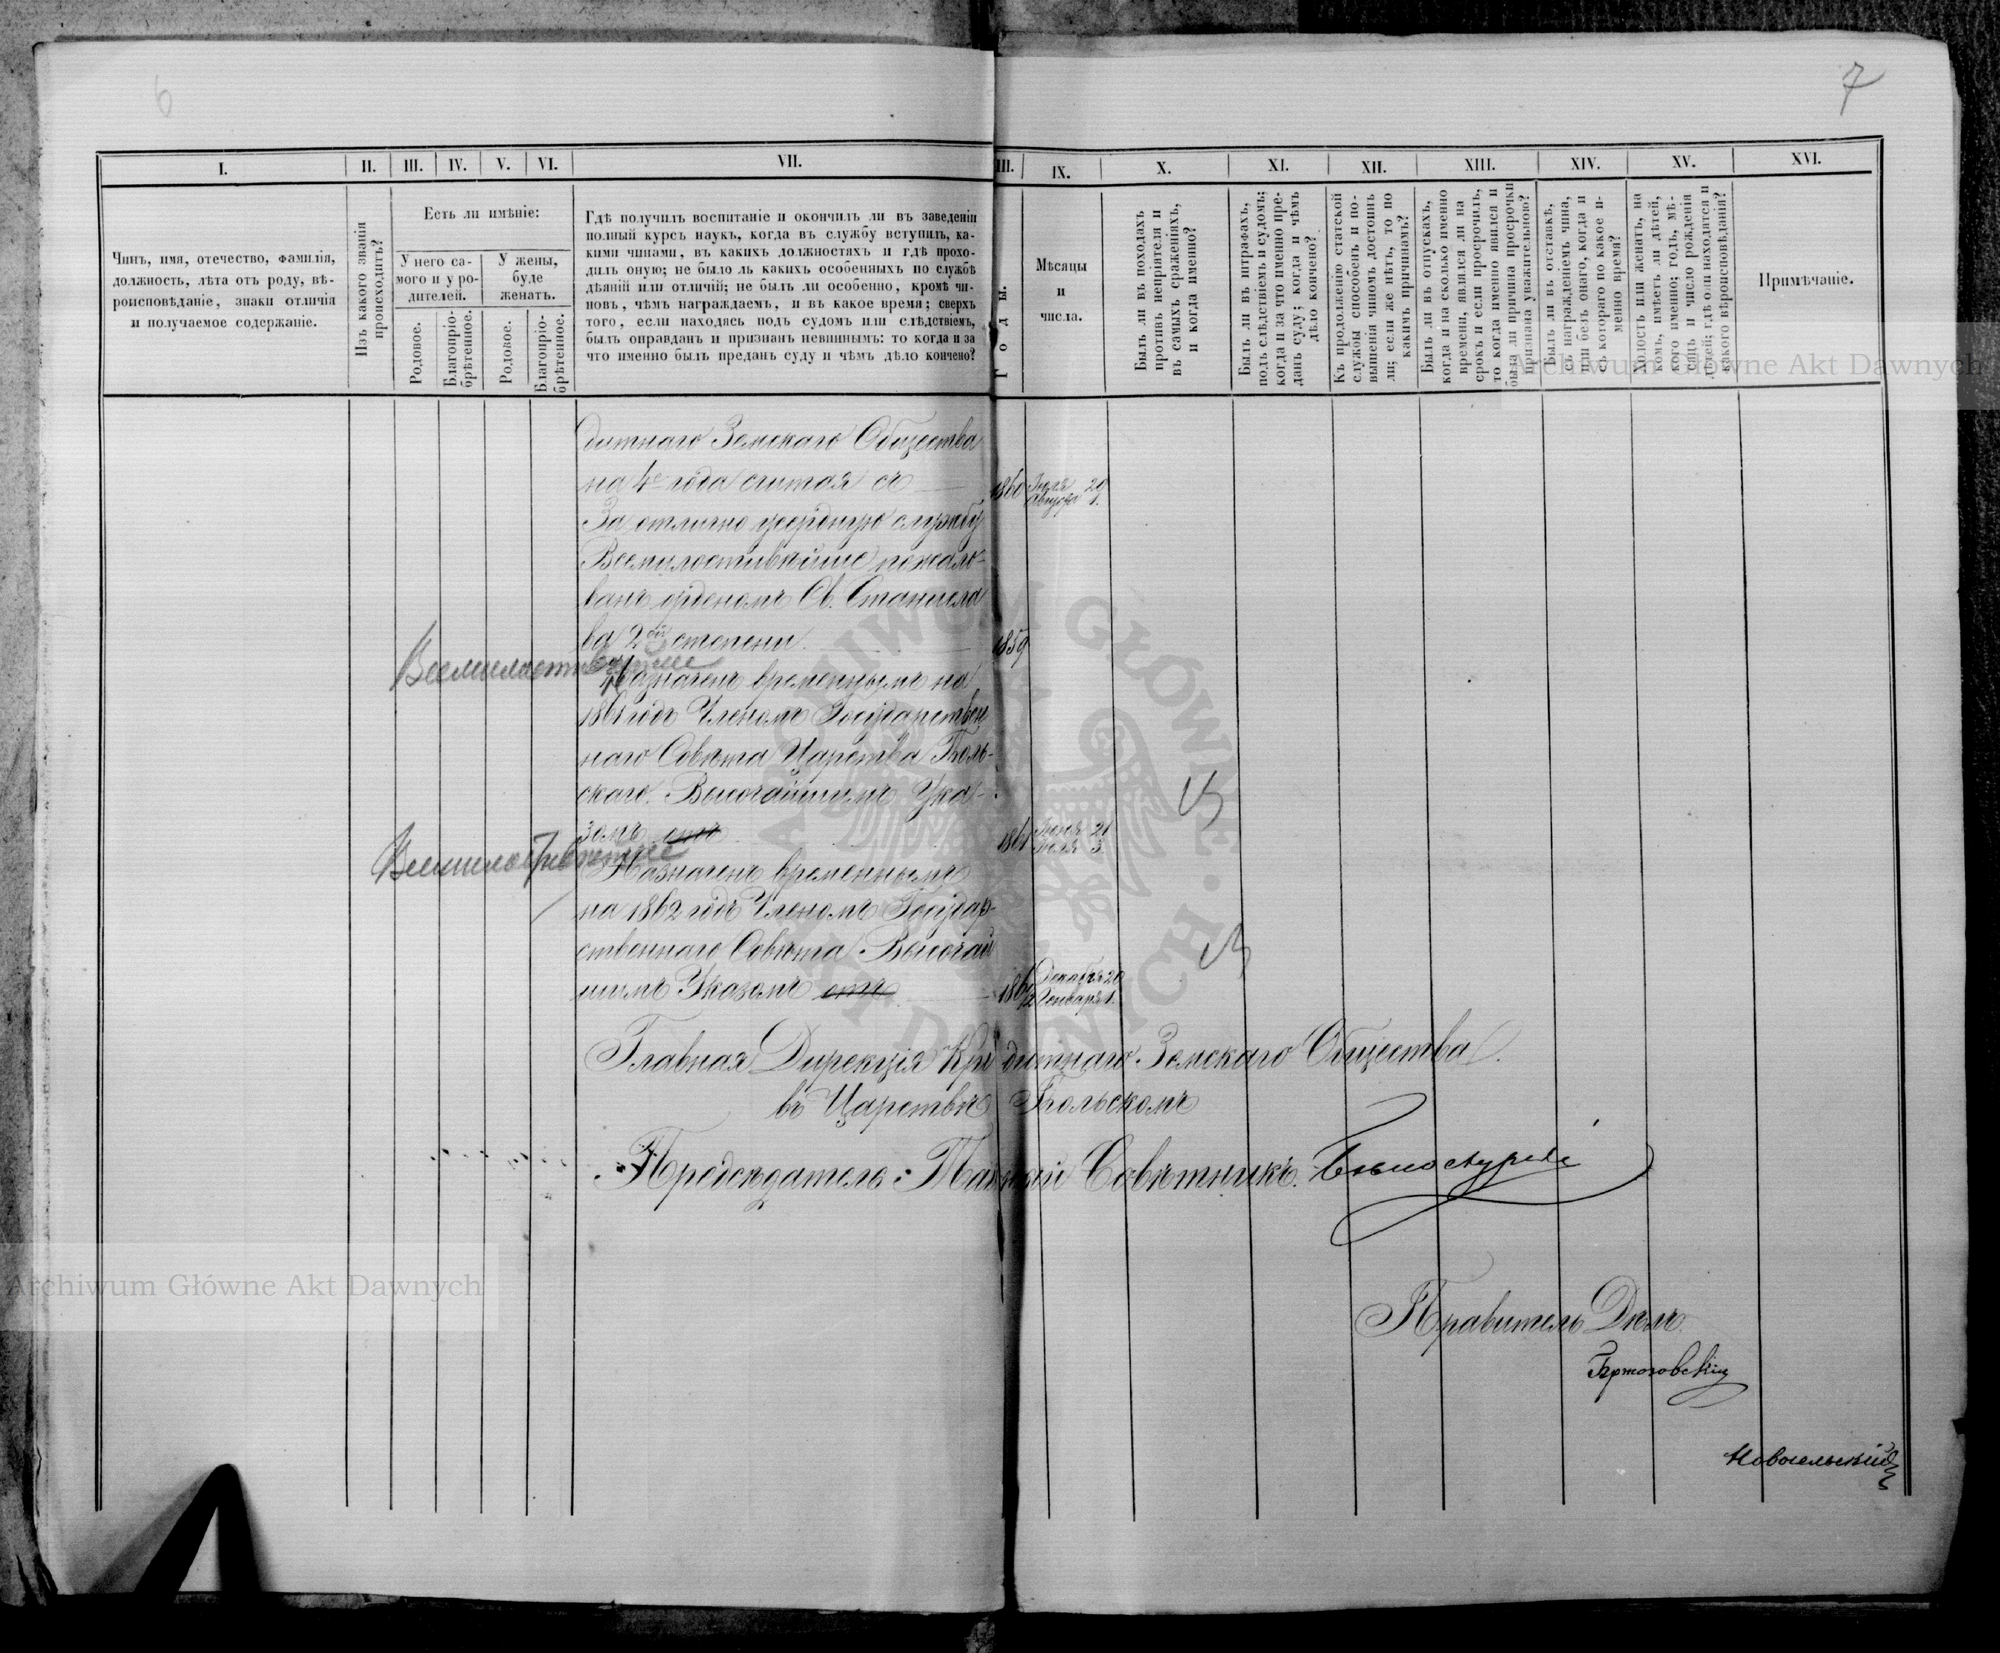 6
7
I.
II.
III.
IV.
V.
VI.
VII.
III.
IX.
X.
XI.
XII.
XIII.
XIV.
XV.
XVI.
Чинъ, имя, отечество, фамилія,
должность, лѣта отъ роду, вѣ-
роисповѣданіе, знаки отличія
и получаемое содержаніе.
Изъ какого званія
происходитъ?
Есть ли имѣніе:
У него са-
мого и у ро-
дителей.
У жены,
буде
женатъ.
Родовое.
Благопріо-
брѣтенное.
Родовое.
Благопріо-
брѣтенное.
Гдѣ получилъ воспитаніе и окончилъ ли въ заведеніи
полный курсъ наукъ, когда въ службу вступилъ, ка-
кими чинами, въ какихъ должностяхъ и гдѣ прохо-
дилъ оную; не было ль какихъ особенныхъ по службѣ
дѣяній или отличій; не былъ ли особенно, кромѣ чи-
новъ, чѣмъ награждаемъ, и въ какое время; сверхъ
того, если находясь подъ судомъ или слѣдствіемъ,
былъ оправданъ и признанъ невиннымъ: то когда и за
что именно былъ преданъ суду и чѣмъ дѣло кончено?
Годы.
Мѣсяцы
и
числа.
Былъ ли въ походахъ
противъ непріятеля и
въ самыхъ сраженіяхъ,
и когда именно?
Былъ ли въ штрафахъ,
подъ слѣдствіемъ и судомъ;
когда и за что именно пре-
данъ суду; когда и чѣмъ
дѣло кончено?
Къ продолженію статской
службы способенъ и по-
вышенія чиномъ достоинъ
ли; если же нѣтъ, то по
какимъ причинамъ?
Былъ ли въ отпускахъ,
когда и на сколько именно
времени, явился ли на
срокъ и если просрочилъ,
то когда именно явился и
была ли причина просрочки
признана уважительною?
Былъ ли въ отставкѣ,
съ награжденіемъ чина,
или безъ онаго, когда и
съ котораго по какое и-
менно время?
Холостъ или женатъ, на
комъ, имѣетъ ли дѣтей,
кого именно; годъ, мѣ-
сяцъ и число рожденія
дѣтей; гдѣ они находятся и
какого вѣроисповѣданія?
Примѣчаніе.
дитнаго Земскаго Общества
на 4е года считая съ 1860 Іюля 20 Августа 1.
За отлично усердную службу
Всемилостивѣйше пожало-
ванъ орденомъ Св. Станисла
ва 2ой степени. 1859
Всемилостивѣйше
Назначенъ временнымъ на
1861 годъ Членомъ Государствен
наго Совѣта Царства Поль-
скаго. Высочайшимъ Ука-
зомъ отъ 1861 Іюня 21 Іюля 3.
Всемилостивѣйше
Назначенъ временнымъ
на 1862 годъ Членомъ Государ-
ственнаго Совѣта Высочай
шимъ Указомъ отъ 1861/2 Декабря 20 Января 1.
Главная Дирекція Кредитнаго Земскаго Общества
въ Царствѣ Польскомъ
Предсѣдатель: Тайный Совѣтникъ
Правитель Дѣлъ
Новосельскій
Archiwum Główne Akt Dawnych
Archiwum Główne Akt Dawnych
ARCHIWUM GŁÓWNE AKT DAWNYCH